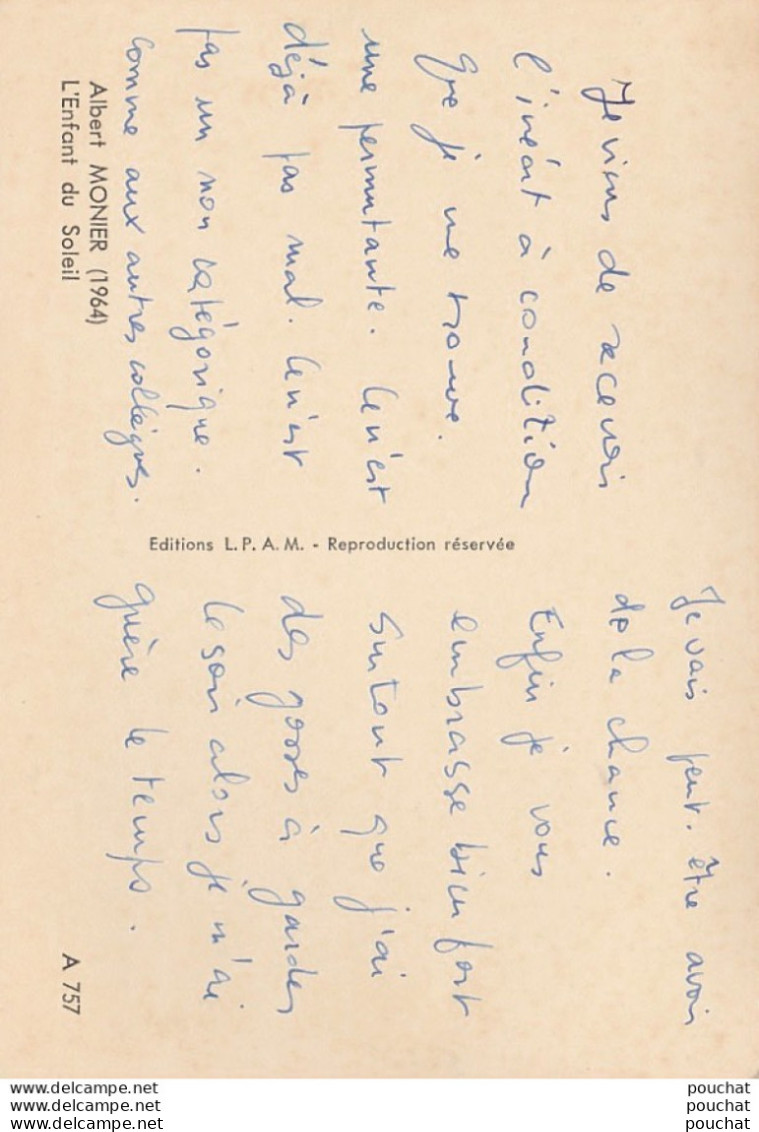 Je viens de recevoir
l'inéat à condition
que je me trouve
une permutante. Ce n'est
déjà pas mal. Ce n'est
pas un non catégorique.
comme aux autres collègues.
Albert MONIER (1964)
L'Enfant du Soleil
Editions L.P.A.M. - Reproduction réservée
Je vais peut-être avoir
de la chance.
Enfin je vous
embrasse bien fort
surtout que j'ai
des gosses à garder
le soir alors je n'ai
guère le temps.
A 757
www.delcampe.net
www.delcampe.net
www.delcampe.net
pouchat
pouchat
pouchat